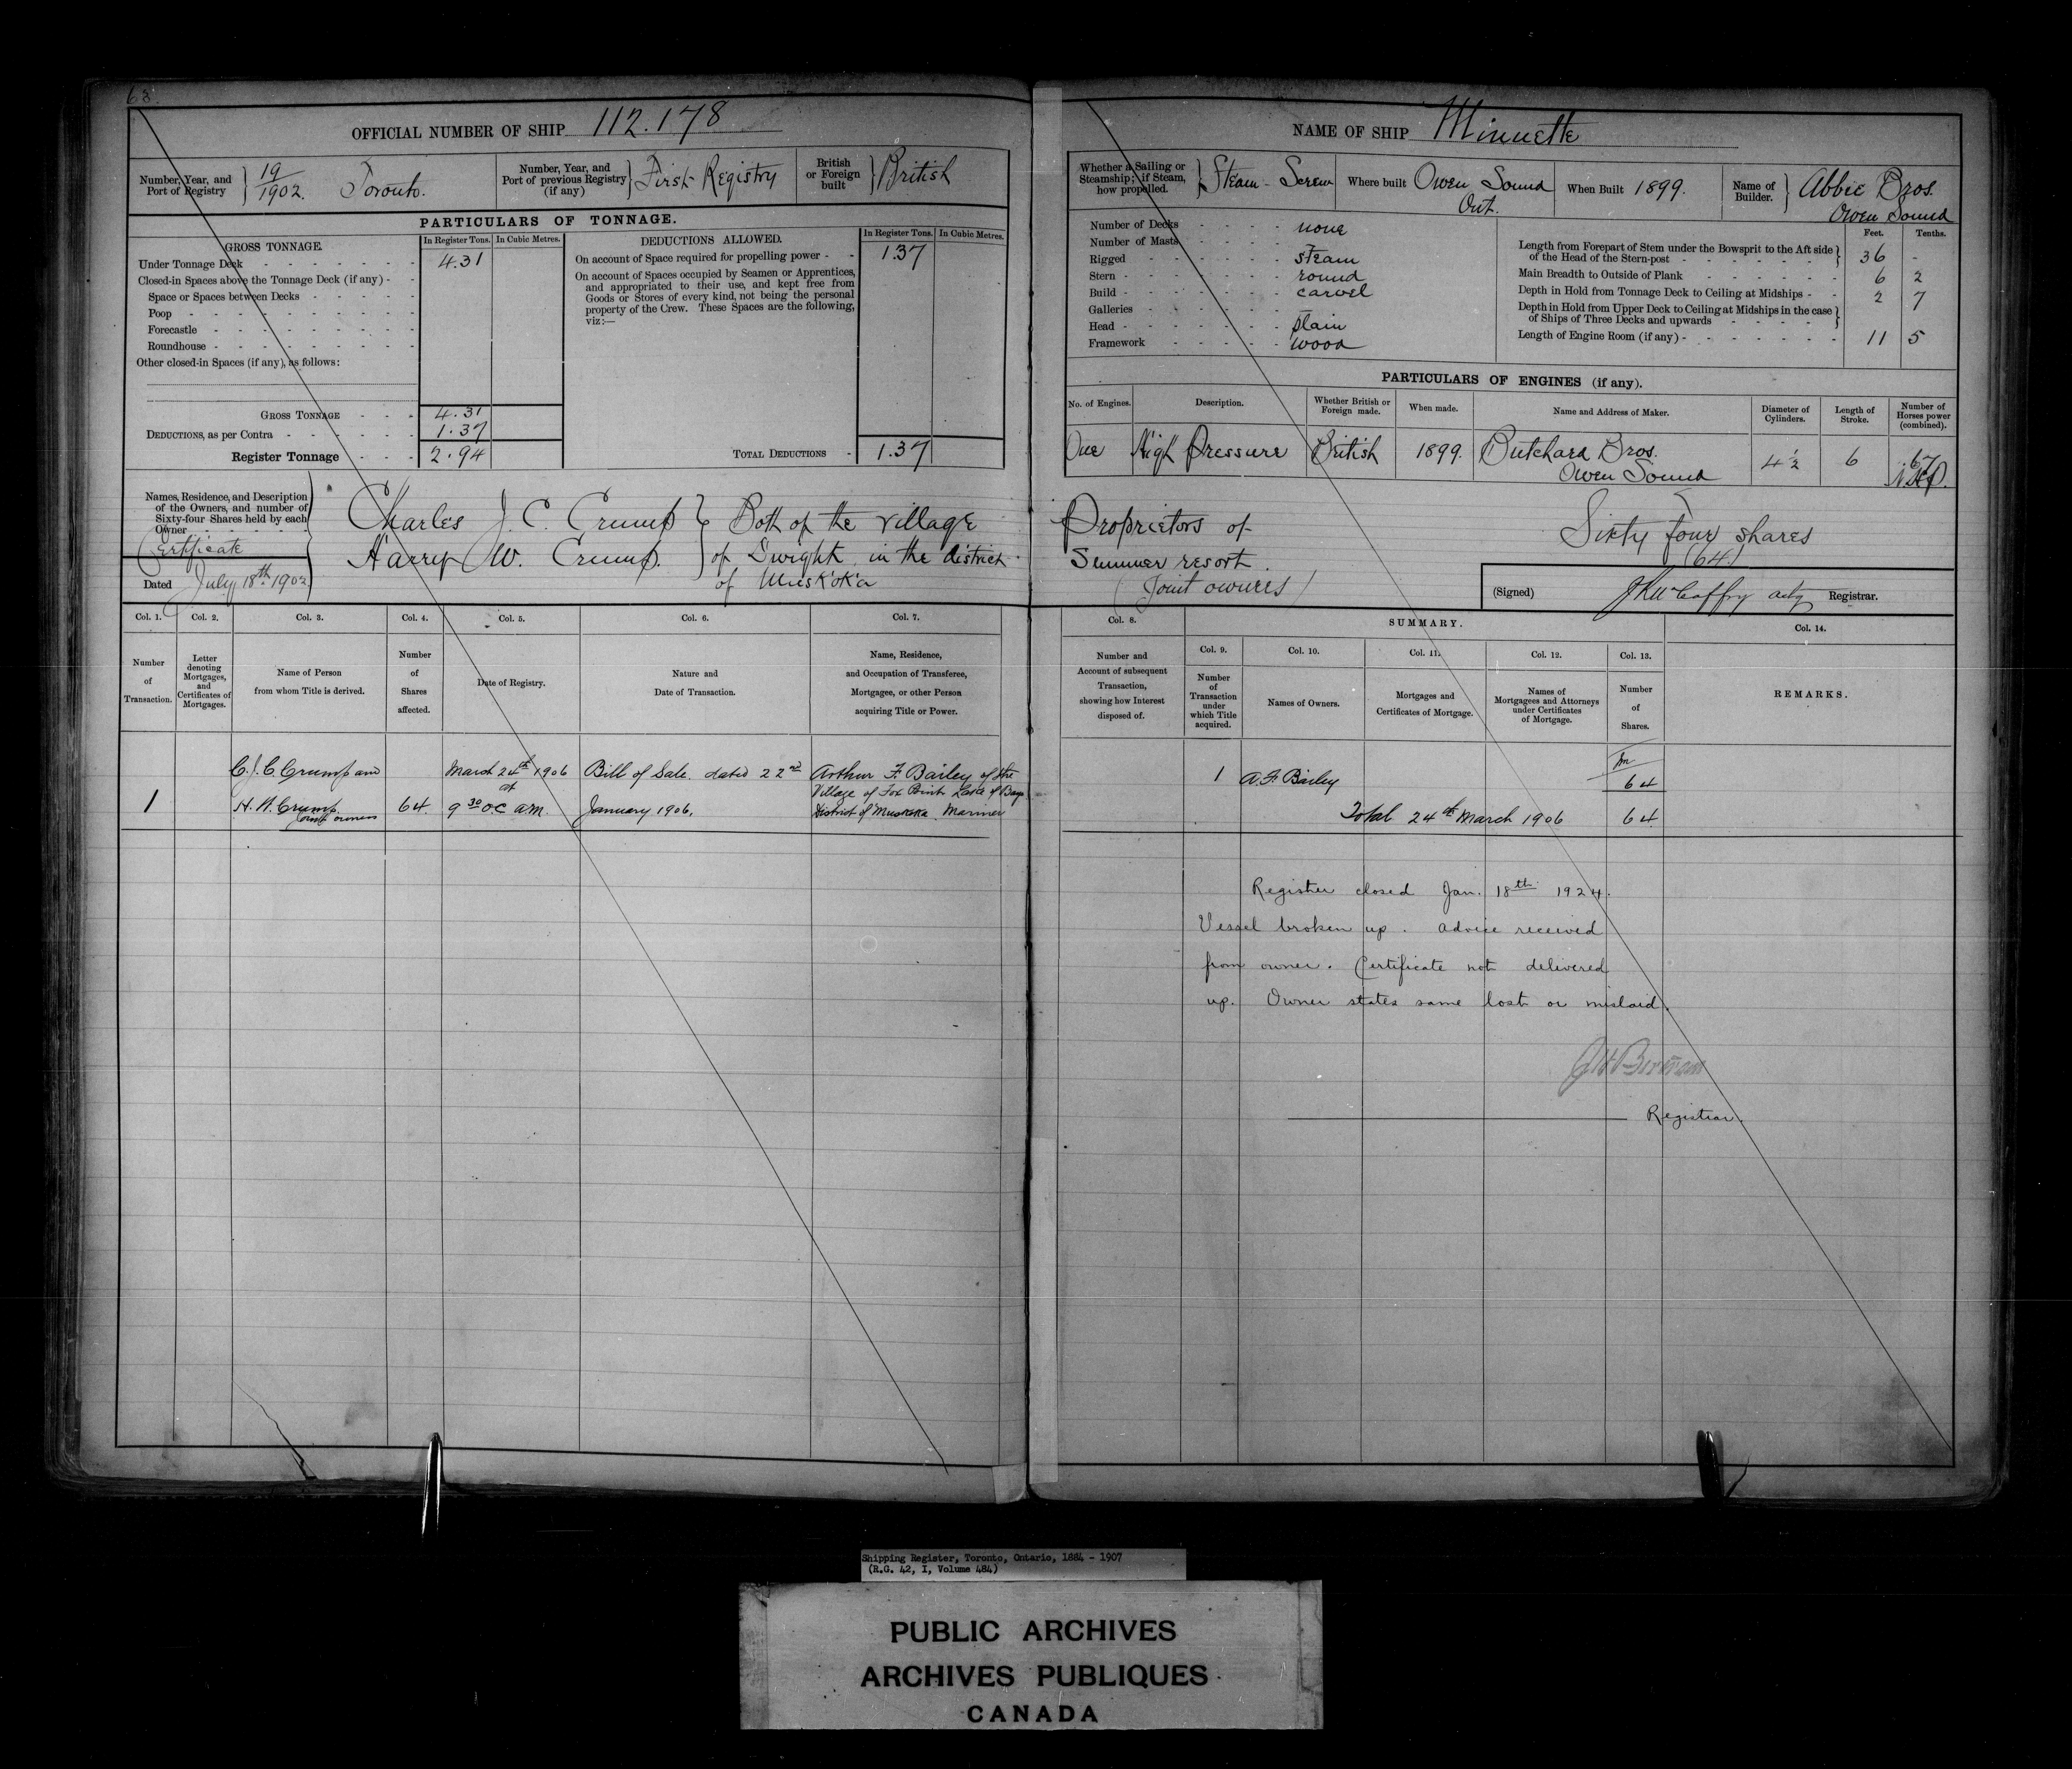 68.
OFFICIAL NUMBER OF SHIP 112.178
Number, Year, and Port of Registry } 19/1902. Toronto.
Number, Year, and Port of previous Registry (if any) } First Registry
British or Foreign built } British
PARTICULARS OF TONNAGE.
GROSS TONNAGE.
In Register Tons. In Cubic Metres.
DEDUCTIONS ALLOWED.
In Register Tons. In Cubic Metres.
Under Tonnage Deck - - - - - - 4.31
Closed-in Spaces above the Tonnage Deck (if any) - -
Space or Spaces between Decks - - - - -
Poop - - - - - - - - -
Forecastle - - - - - - - -
Roundhouse - - - - - - - -
Other closed-in Spaces (if any), as follows:
GROSS TONNAGE - - - 4.31
DEDUCTIONS, as per Contra - - - - - - 1.37
Register Tonnage - - - 2.94
On account of Space required for propelling power - - 1.37
On account of Spaces occupied by Seamen or Apprentices,
and appropriated to their use, and kept free from
Goods or Stores of every kind, not being the personal
property of the Crew. These Spaces are the following,
viz:—
TOTAL DEDUCTIONS - 1.37
Names, Residence, and Description
of the Owners, and number of
Sixty-four Shares held by each
Owner - - - -
Certificate
Dated July 18th 1902
Charles J. C. Crump } Both of the village
Harry W. Crump. } of Dwight in the district
of Muskoka
Col. 1. Col. 2. Col. 3. Col. 4. Col. 5. Col. 6. Col. 7.
Number of Transaction.
Letter denoting Mortgages, and Certificates of Mortgages.
Name of Person from whom Title is derived.
Number of Shares affected.
Date of Registry.
Nature and Date of Transaction.
Name, Residence, and Occupation of Transferee, Mortgagee, or other Person acquiring Title or Power.
C.J.C. Crump and March 24th 1906 Bill of Sale. dated 22nd Arthur F. Bailey of the
at Village of Fox Point Lake of Bays
1 H. W. Crump 64. 9 30 o.c a.m. January 1906. District of Muskoka Mariner
joint owners
NAME OF SHIP Minnette
Whether a Sailing or Steamship; if Steam, how propelled. } Steam - Screw
Where built Owen Sound Ont.
When Built 1899.
Name of Builder. } Abbie Bros. Owen Sound
Number of Decks - - - - none
Number of Masts - - - -
Rigged - - - - - - steam
Stern - - - - - - - round
Build - - - - - - - carvel
Galleries - - - - - -
Head - - - - - - - plain
Framework - - - - - wood
Feet. Tenths.
Length from Forepart of Stem under the Bowsprit to the Aft side
of the Head of the Stern-post - - - - - - } 36 -
Main Breadth to Outside of Plank - - - - - 6 2
Depth in Hold from Tonnage Deck to Ceiling at Midships - - 2 7
Depth in Hold from Upper Deck to Ceiling at Midships in the case
of Ships of Three Decks and upwards - - - - }
Length of Engine Room (if any) - - - - - - - 11 5
PARTICULARS OF ENGINES (if any).
No. of Engines. Description. Whether British or Foreign made. When made. Name and Address of Maker. Diameter of Cylinders. Length of Stroke. Number of Horses power (combined).
One High Pressure British 1899. Butchard Bros. 4½ 6 .67
Owen Sound N.H.P.
Proprietors of
Summer resort.
(Joint owners)
Sixty four shares
(64)
(Signed) Registrar.
Col. 8. SUMMARY. Col. 14.
Number and Account of subsequent Transaction, showing how Interest disposed of.
Col. 9. Col. 10. Col. 11. Col. 12. Col. 13.
Number of Transaction under which Title acquired.
Names of Owners.
Mortgages and Certificates of Mortgage.
Names of Mortgagees and Attorneys under Certificates of Mortgage.
Number of Shares.
REMARKS.
1 A. F. Bailey 64
Total 24th March 1906 64
Register closed Jan. 18th 1924.
Vessel broken up. Advice received
from owner. Certificate not delivered
up. Owner states same lost or mislaid.
Registrar.
Shipping Register, Toronto, Ontario, 1884 - 1907
(R.G. 42, I, Volume 484)
PUBLIC ARCHIVES
ARCHIVES PUBLIQUES
CANADA